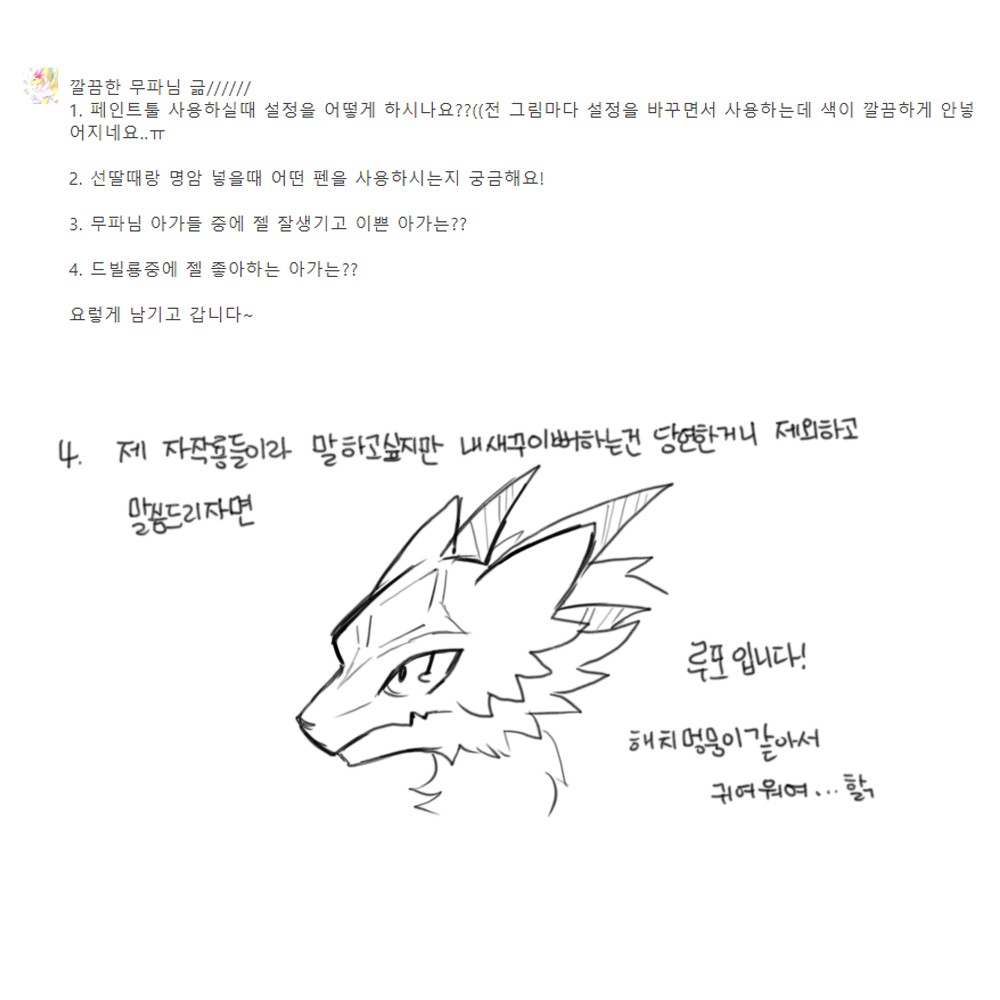 깔끔한 무파님 긂//////
1. 페인트툴 사용하실때 설정을 어떻게 하시나요??((전 그림마다 설정을 바꾸면서 사용하는데 색이 깔끔하게 안넣
어지네요..ㅠ
2. 선딸때랑 명암 넣을때 어떤 펜을 사용하시는지 궁금해요!
3. 무파님 아가들 중에 젤 잘생기고 이쁜 아가는??
4. 드빌룡중에 젤 좋아하는 아가는??
요렇게 남기고 갑니다~
4. 제 자작룡들이라 말하고싶지만 내새꾸이뻐하는건 당연한거니 제외하고
말씀드리자면
루포입니다!
해치멍뭉이같아서
귀여워여...핡